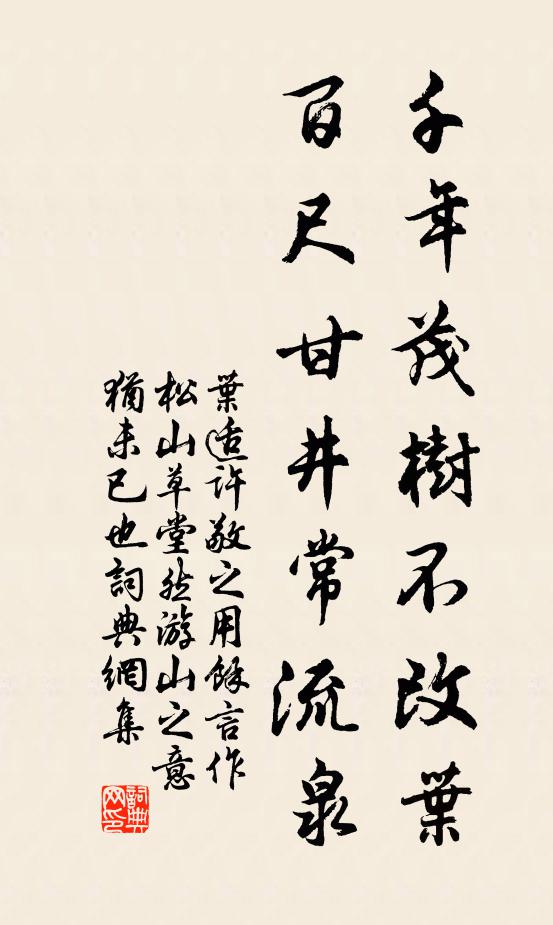 千年茂樹不改葉
百尺甘井常流泉
葉适許敬之用餘言作
松山草堂然游山之意
猶未已也詞典網集
詞典網印